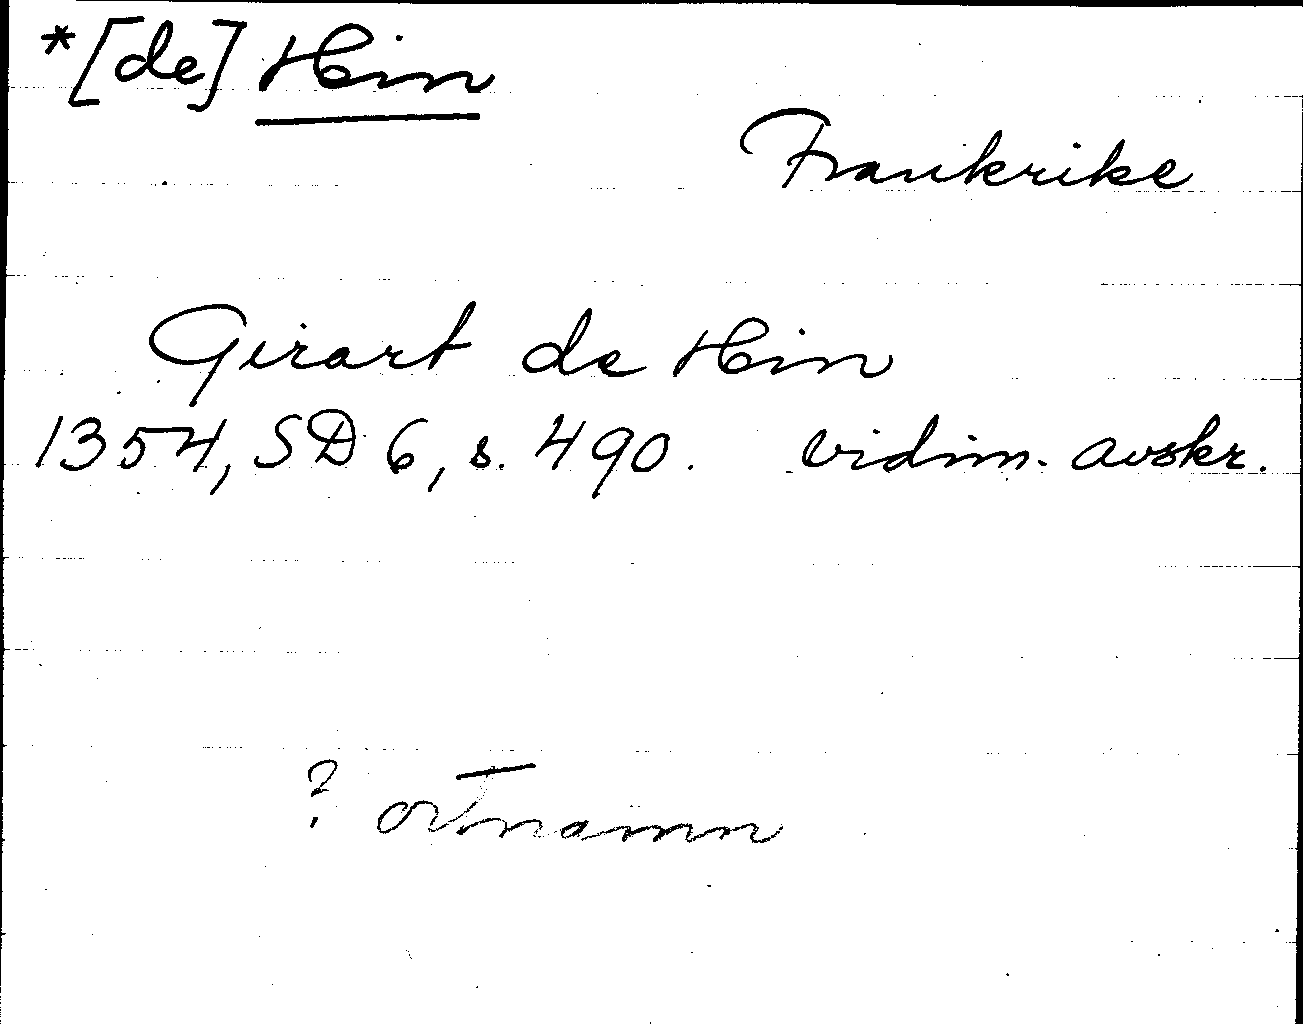 *[de] Hin
Frankrike
Girart de Hin
1354, SD 6, s. 490. vidim. avskr.
? ortnamn